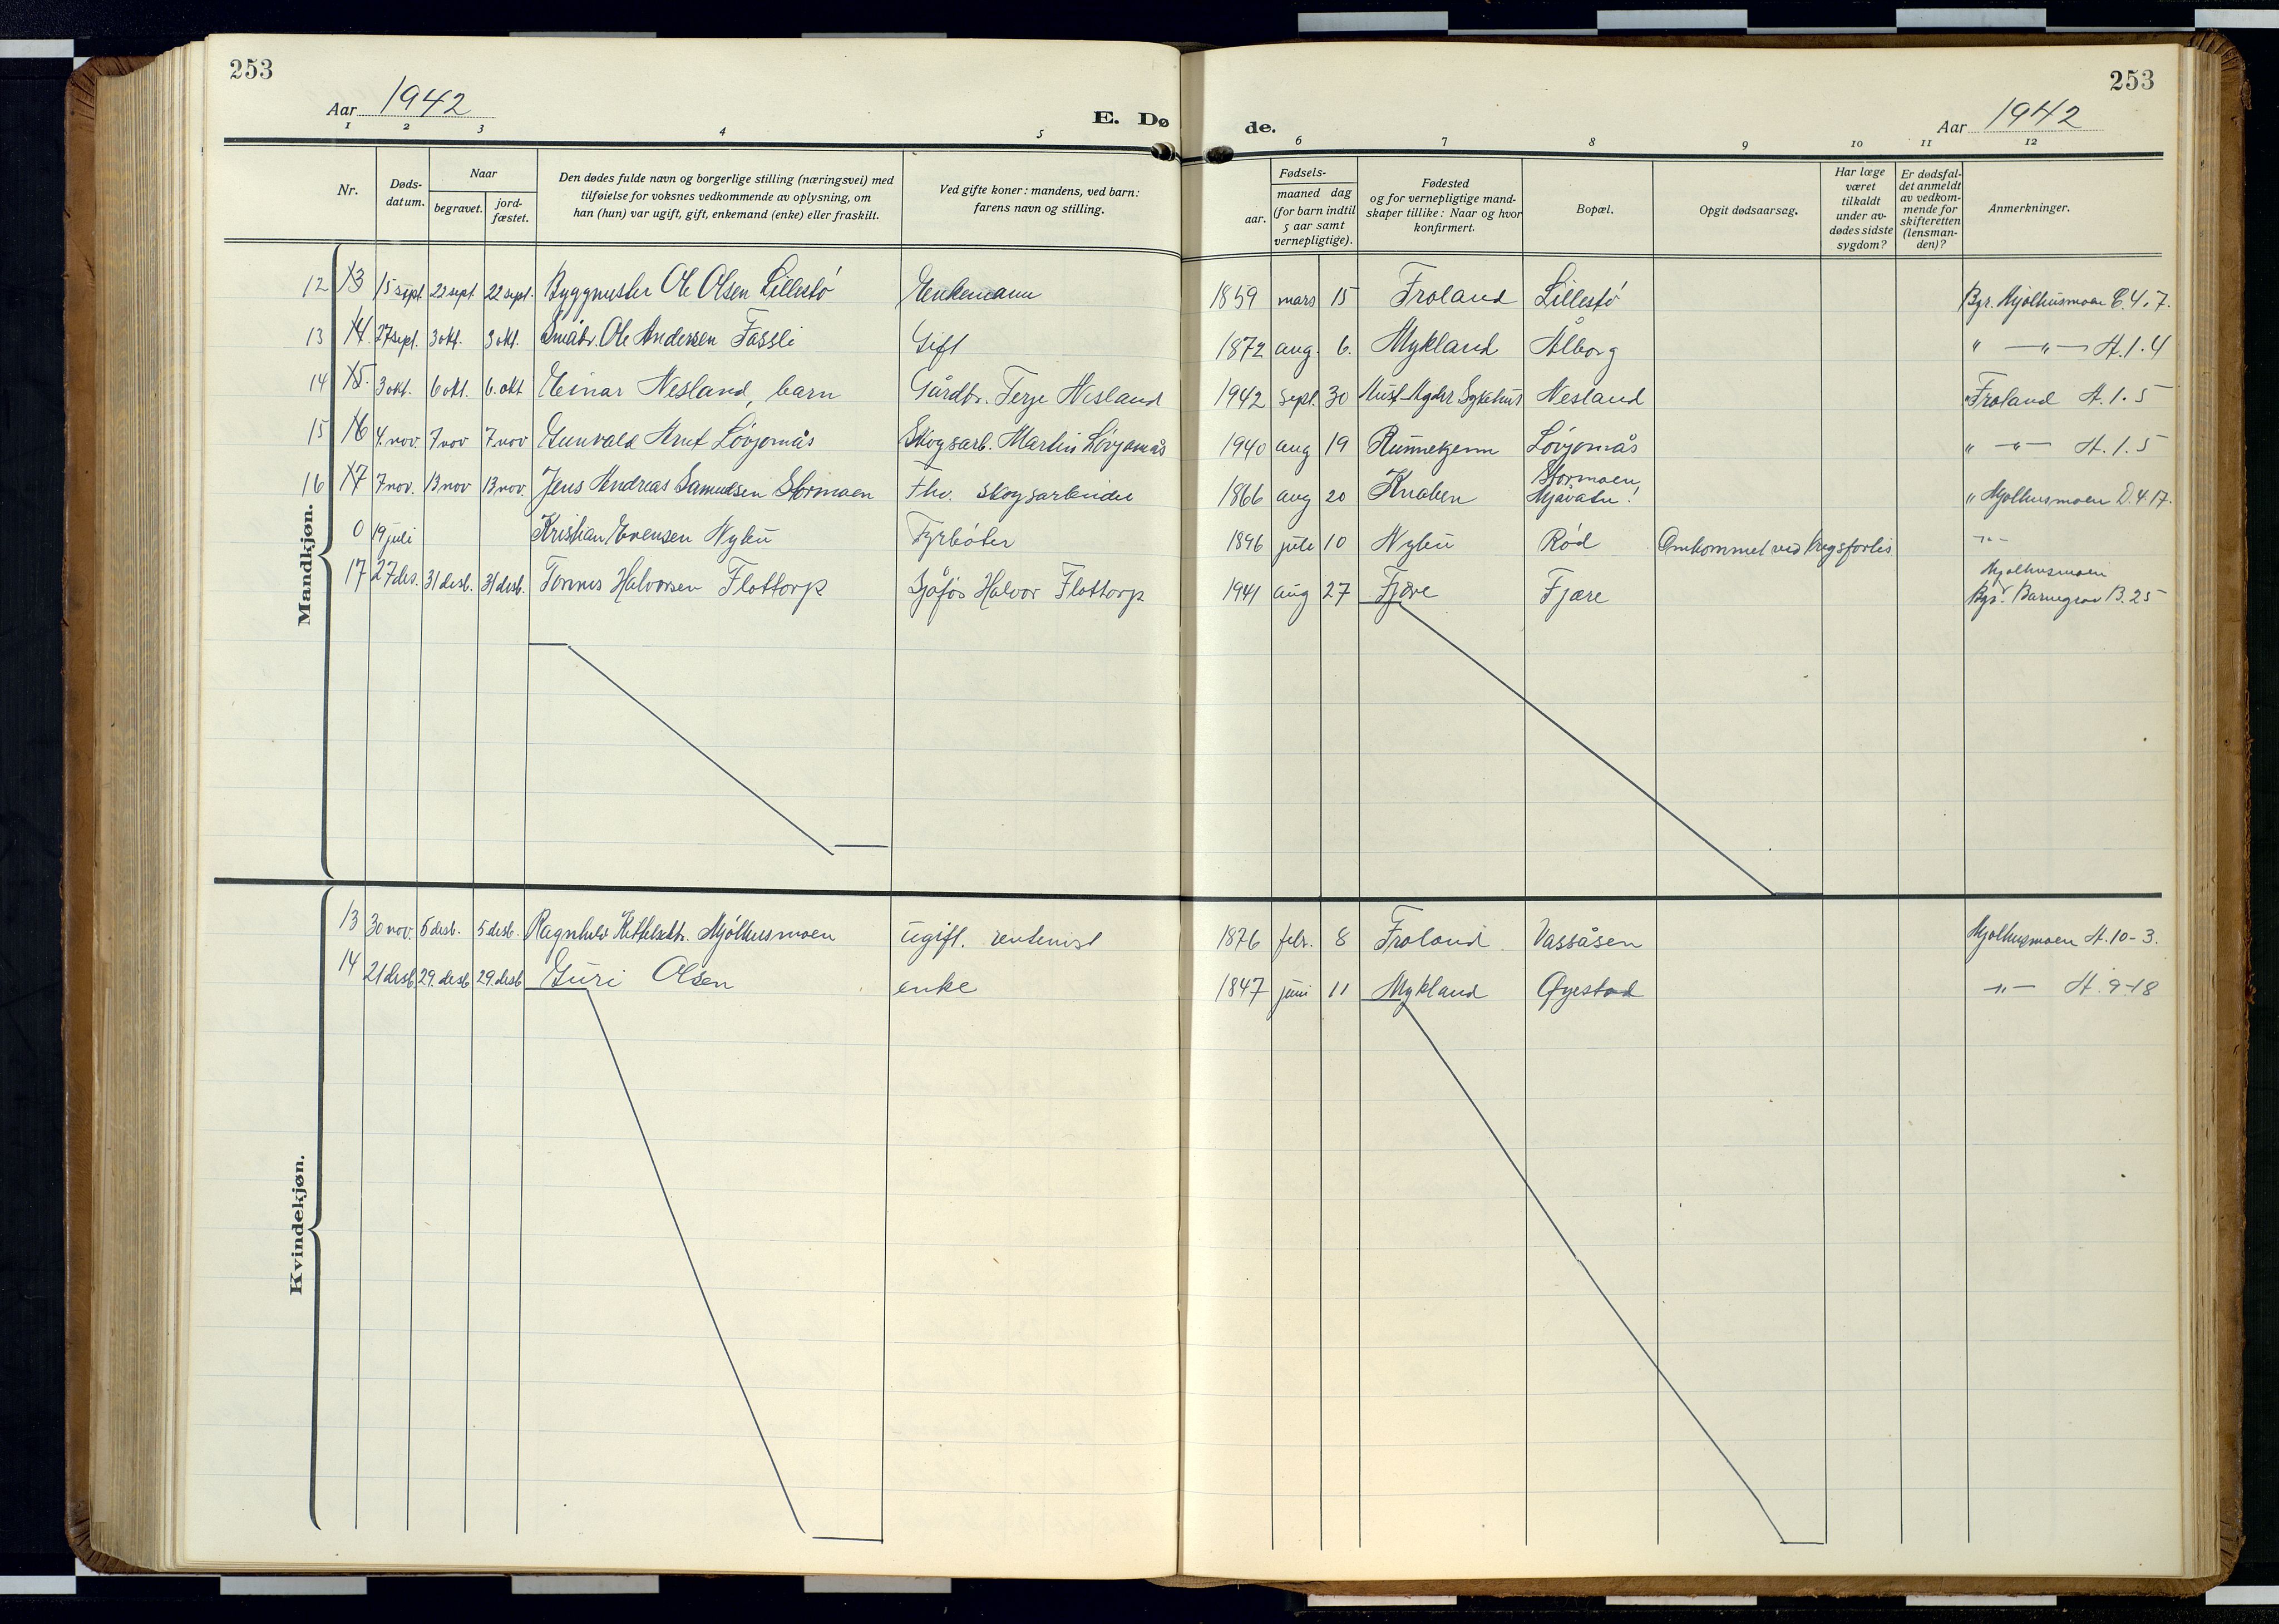 253
Aar 1942
E. Dø
1 2 3 4 5
Nr. Døds-datum. Naar begravet. jord-fæstet. Den dødes fulde navn og borgerlige stilling (næringsvei) med tilføielse for voksnes vedkommende av oplysning, om han (hun) var ugift, gift, enkemand (enke) eller fraskilt. Ved gifte koner: mandens, ved barn: farens navn og stilling.
253
Aar 1942
de.
6 7 8 9 10 11 12
Fødsels- aar. maaned dag (for barn indtil 5 aar samt vernepligtige). Fødested og for vernepligtige mand-skaper tillike: Naar og hvor konfirmert. Bopæl. Opgit dødsaarsag. Har læge været tilkaldt under av-dødes sidste sygdom? Er dødsfal-det anmeldt av vedkom-mende for skifteretten (lensman-den)? Anmerkninger.
Mandkjøn.
12 13 15 sept. 22 sept. 22 sept. Byggmester Ole Olsen Lillestø Enkemann 1859 mars 15 Froland Lillestø Bgr. Mjølhusmoen C.4.7.
13 14. 27 sept. 3 okt. 3 okt. Småbr. Ole Andersen Fassli Gift 1872 aug. 6. Mykland Ålborg " — " — A.1.4
14 15. 3 okt. 6 okt. 6. okt Einar Nesland, barn Gårdbr. Terje Nesland 1942 sept. 30 Aust Agder Sykehus Nesland " Froland A.1.5
15 16 4. nov. 7 nov 7 nov Gunvald Arnt Løvjomås Skogsarb. Martin Løvjomås 1940 aug 19 Runnekjenn Løvjomås " — " — A.1.5
16 17 7 nov. 13 nov 13 nov. Jens Andreas Samuelsen Stormoen Fhv. skogsarbeider 1866 aug 20 Knaben Stormoen Mjåvatn! " Mjølhusmoen D.4.17.
0 19 juli Kristian Evensen Nybu Fyrbøter 1896 jule 10 Nybu Rød Omkommet ved krigsforlis — " —
17 27 des. 31 desb. 31 desb. Tønnes Halvorsen Flottorp Sjåfør Halvor Flottorp 1941 aug 27 Fjære Fjære Mjølhusmoen Bgr. Barnegrav B.25
Kvindekjøn.
13 30 nov. 5 desb. 5 desb. Ragnhild Kittelsdtr. Mjølhusmoen ugift. rentenist 1876 febr. 8 Froland. Vassåsen Mjølhusmoen A.10-3.
14 21 desb 29. desb 29. desb Guri Olsen enke 1847 juni 11 Mykland Øyestad — " — A.9-18